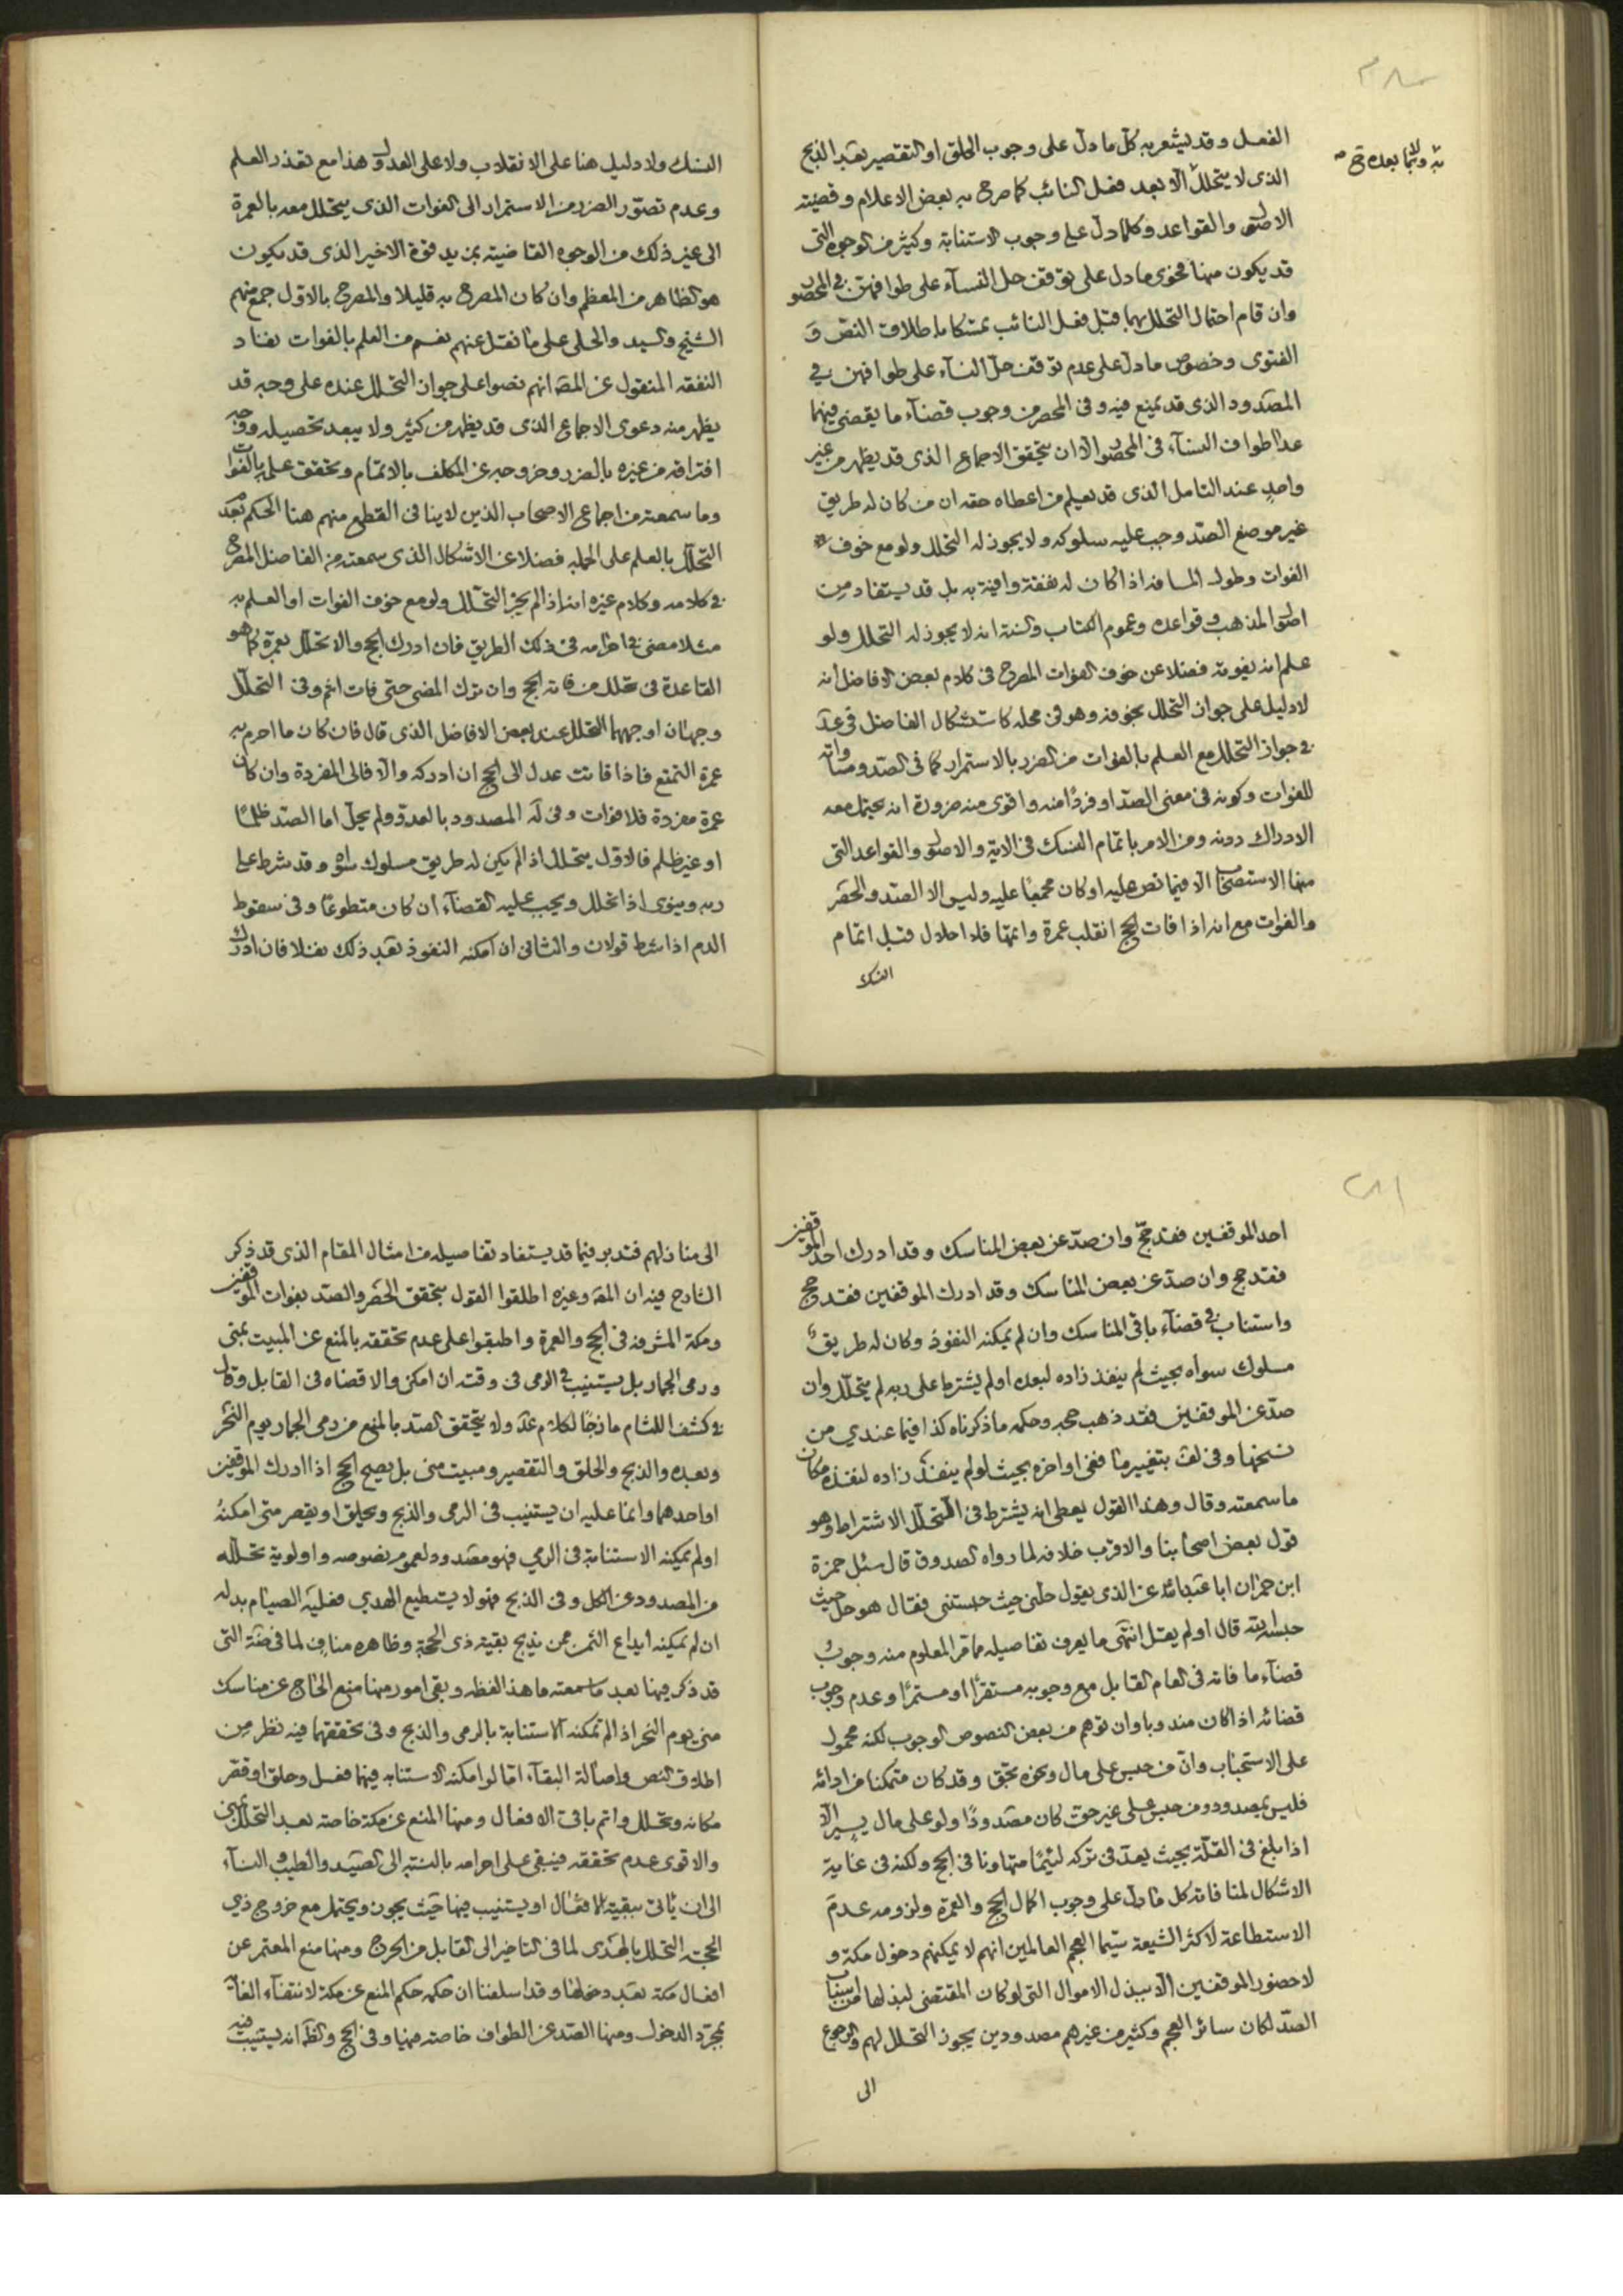 الفعل وقد يشعر به كل ما دل على وجوب الحلق او التقصير بعد الذبح
الذى لا يتحلل الا بعد فعل النائب كما صرح به بعض الاعلام وقضيته
الاصول والقواعد وكلما دل على وجوب الاستنابة وكثير من الوجوه التى
قد يكون منها فحوى ما دل على توقف حل النساء على طوافهن فى المحصور
وان قام احتمال التحلل بها قبل فعل النائب تمسكا باطلاق النص و
الفتوى وخصوص ما دل على عدم توقف حل النساء على طوافهن فى
المصدود الذى قد يمنع فيه وفى المحصر من وجوب قضاء ما يقضى فيهما
عدا طواف النساء فى المحصور الا ان يتحقق الاجماع الذى قد يظهر من غير
واحد عند التامل الذى قد يعلم من اعطاه حقه ان من كان له طريق
غير موضع الصد وجب عليه سلوكه ولا يجوز له التحلل ولو مع خوف
الفوات وطول المسافة اذا كان له نفقة وافية به بل قد يستفاد من
اصول المذهب وقواعده وعموم الكتاب والسنة انه لا يجوز له التحلل ولو
علم انه يفوته فضلا عن خوف الفوات المصرح فى كلام بعض الافاضل انه
لا دليل على جواز التحلل بخوفه وهو فى محله كاستشكال الفاضل فى عد
فى جواز التحلل مع العلم بالفوات من الضرر بالاستمرار كما فى الصد ومساواته
للفوات وكونه فى معنى الصد او فردا منه واقوى منه ضرورة انه يحتمل معه
الادراك دونه ومن الامر باتمام النسك فى الاية والاصول والقواعد التى
منها الاستصحاب الا فيما نص عليه او كان مجمعا عليه وليس الا الصد والحصر
والفوات مع انه اذا فات الحج انقلب عمرة واتمها فلا احلال قبل اتمام
النسك
النسك ولا دليل هنا على الانقلاب ولا على العدول وهذا مع تعذر العلم
وعدم تصور الضرر من الاستمرار الى الفوات الذى يتحلل معه بالعمرة
الى غير ذلك من الوجوه القاضيته بمزيد قوة الاخير الذى قد يكون
هو الظاهر من المعظم وان كان المصرح به قليلا والمصرح بالاول جمع منهم
الشيخ والسيد والحلى على ما نقل عنهم نعم من العلم بالفوات نفاد
النفقة المنقول عن المصه انهم نصوا على جواز التحلل عنده على وجه قد
يظهر منه دعوى الاجماع الذى قد يظهر من كثير ولا يبعد تحصيله ووجه
افتراقه من غيره بالضرر وخروجه عن المكلف بالاتمام وتحقق علمه بالفوات
وما سمعته من اجماع الاصحاب الذين لا ينافى القطع منهم هنا الحكم بعد
التحلل بالعلم على الجملة فضلا عن الاشكال الذى سمعته من الفاضل المصرح
فى كلامه وكلام غيره انه اذا لم يجز التحلل ولو مع خوف الفوات او العلم به
مثلا مضى فى احرامه فى ذلك الطريق فان ادرك الحج والا تحلل بعمرة كما هو
القاعدة فى تحلل من فاته الحج وان ترك المضى حتى فات اثم وفى التحلل
وجهان اوجههما التحلل عند بعض الافاضل الذى قال فان كان ما احرم به
عمرة التمتع فاذا فاتت عدل الى الحج ان ادركه والا فالى المفردة وان كان
عمرة مفردة فلا فوات وفى له المصدود بالعدو ولم يحل اما الصد ظلما
او غير ظلم فالاول يتحلل اذا لم يكن له طريق مسلوك سواه وقد شرط على
ربه وينوى اذا تحلل ويجب عليه القضاء ان كان متطوعا وفى سقوط
الدم اذا شرط قولان والثانى ان امكنه النفوذ بعد ذلك نفذ فان ادرك
احد الموقفين فقد حج وان صد عن بعض المناسك وقد ادرك احد الموقفين
فقد حج وان صد عن بعض المناسك وقد ادرك الموقفين فقد حج
واستناب فى قضاء باقى المناسك وان لم يمكنه النفوذ وكان له طريق
مسلوك سواه بحيث لم ينفذ زاده لبعده او لم يشترط على ربه لم يتحلل وان
صد عن الموقفين فقد ذهب حجه وحكمه ما ذكرناه كذا فيما عندي من
نسختها وفى لف بتغيير ما ففى اواخره بحيث لو لم ينفد زاده لنفذه مكان
ما سمعته وقال وهذا القول يعطى انه يشترط فى التحلل الاشتراط وهو
قول بعض اصحابنا والاقرب خلافه لما رواه الصدوق قال سئل حمزة
ابن حمران ابا عبد الله عن الذى يقول حلنى حيث حبستنى فقال هو حل حيث
حبسه الله قال او لم يقل انتهى ما يعرف تفاصيله مما مر المعلوم منه وجوب
قضاء ما فاته فى العام القابل مع وجوبه مستقرا او مستمرا وعدم وجوب
قضائه اذا كان مندوبا وان توهم من بعض النصوص الوجوب لكنه محمول
على الاستحباب وان من حبس على مال ونحوه بحق وقد كان متمكنا من ادائه
فليس بمصدود ومن حبس على غير حق كان مصدودا ولو على مال يسير الا
اذا بلغ فى القلة بحيث يعد فى تركه لئيما متهاونا فى الحج ولكنه فى غاية
الاشكال لمنافاته كل ما دل على وجوب اكمال الحج والعمرة ولزومه عدم
الاستطاعة لاكثر الشيعة سيما العجم العالمين انهم لا يمكنهم دخول مكة و
لا حضور الموقفين الا ببذل الاموال التى لو كان المقتضى لبذلها من اسباب
الصد لكان سائر العجم وكثير من غيرهم مصدودين يجوز التحلل لهم والرجوع
الى
الى منازلهم فتدبر فيما قد يستفاد تفاصيله من امثال المقام الذى قد ذكر
الشارح فيه ان المصه وغيره اطلقوا القول بتحقق الحصر والصد بفوات الموقفين
ومكة المشرفة فى الحج والعمرة واطبقوا على عدم تحققه بالمنع عن المبيت بمنى
ورمى الجمار بل يستنيب فى الرمى فى وقته ان امكن والا قضاه فى القابل وقال
فى كشف اللثام مازجا لكلام عد ولا يتحقق الصد بالمنع من رمى الجمار يوم النحر
وبعده والذبح والحلق والتقصير ومبيت منى بل يصح الحج اذا ادرك الموقفين
او احدهما وانما عليه ان يستنيب فى الرمى والذبح ويحلق او يقصر متى امكنه
او لم يمكنه الاستنابة فى الرمي فهو مصدود لعموم نصوصه واولوية تحلله
من المصدود عن الكل وفى الذبح فهو لا يستطيع الهدي فعليه الصيام بدله
ان لم يمكنه ايداع الثمن ممن يذبح بقية ذى الحجة وظاهره مناف لما فى ضه التى
قد ذكر فيها بعد ما سمعته ما هذا لفظه وبقى امور منها منع الحاج عن مناسك
منى يوم النحر اذا لم تمكنه الاستنابة بالرمى والذبح وفى تحققهما فيه نظر من
اطلاق النص واصالة البقاء اما لو امكنه الاستنابة فيهما فعل وحلق او قصر
مكانه وتحلل واتم باقى الافعال ومنها المنع عن مكة خاصة بعد التحلل بمنى
والاقوى عدم تحققه فيبقى على احرامه بالنسبة الى الصيد والطيب والنساء
الى ان ياتى ببقية الافعال او يستنيب فيها حيث يجوز ويحتمل مع خروج ذي
الحجة التحلل بالهدى لما فى التاخير الى القابل من الحرج ومنها منع المعتمر عن
افعال مكة بعد دخولها وقد اسلفنا ان حكمه حكم المنع عن مكة لانتفاء الغاية
بمجرد الدخول ومنها الصد عن الطواف خاصة فيها وفى الحج والظ انه يستنيب فيه